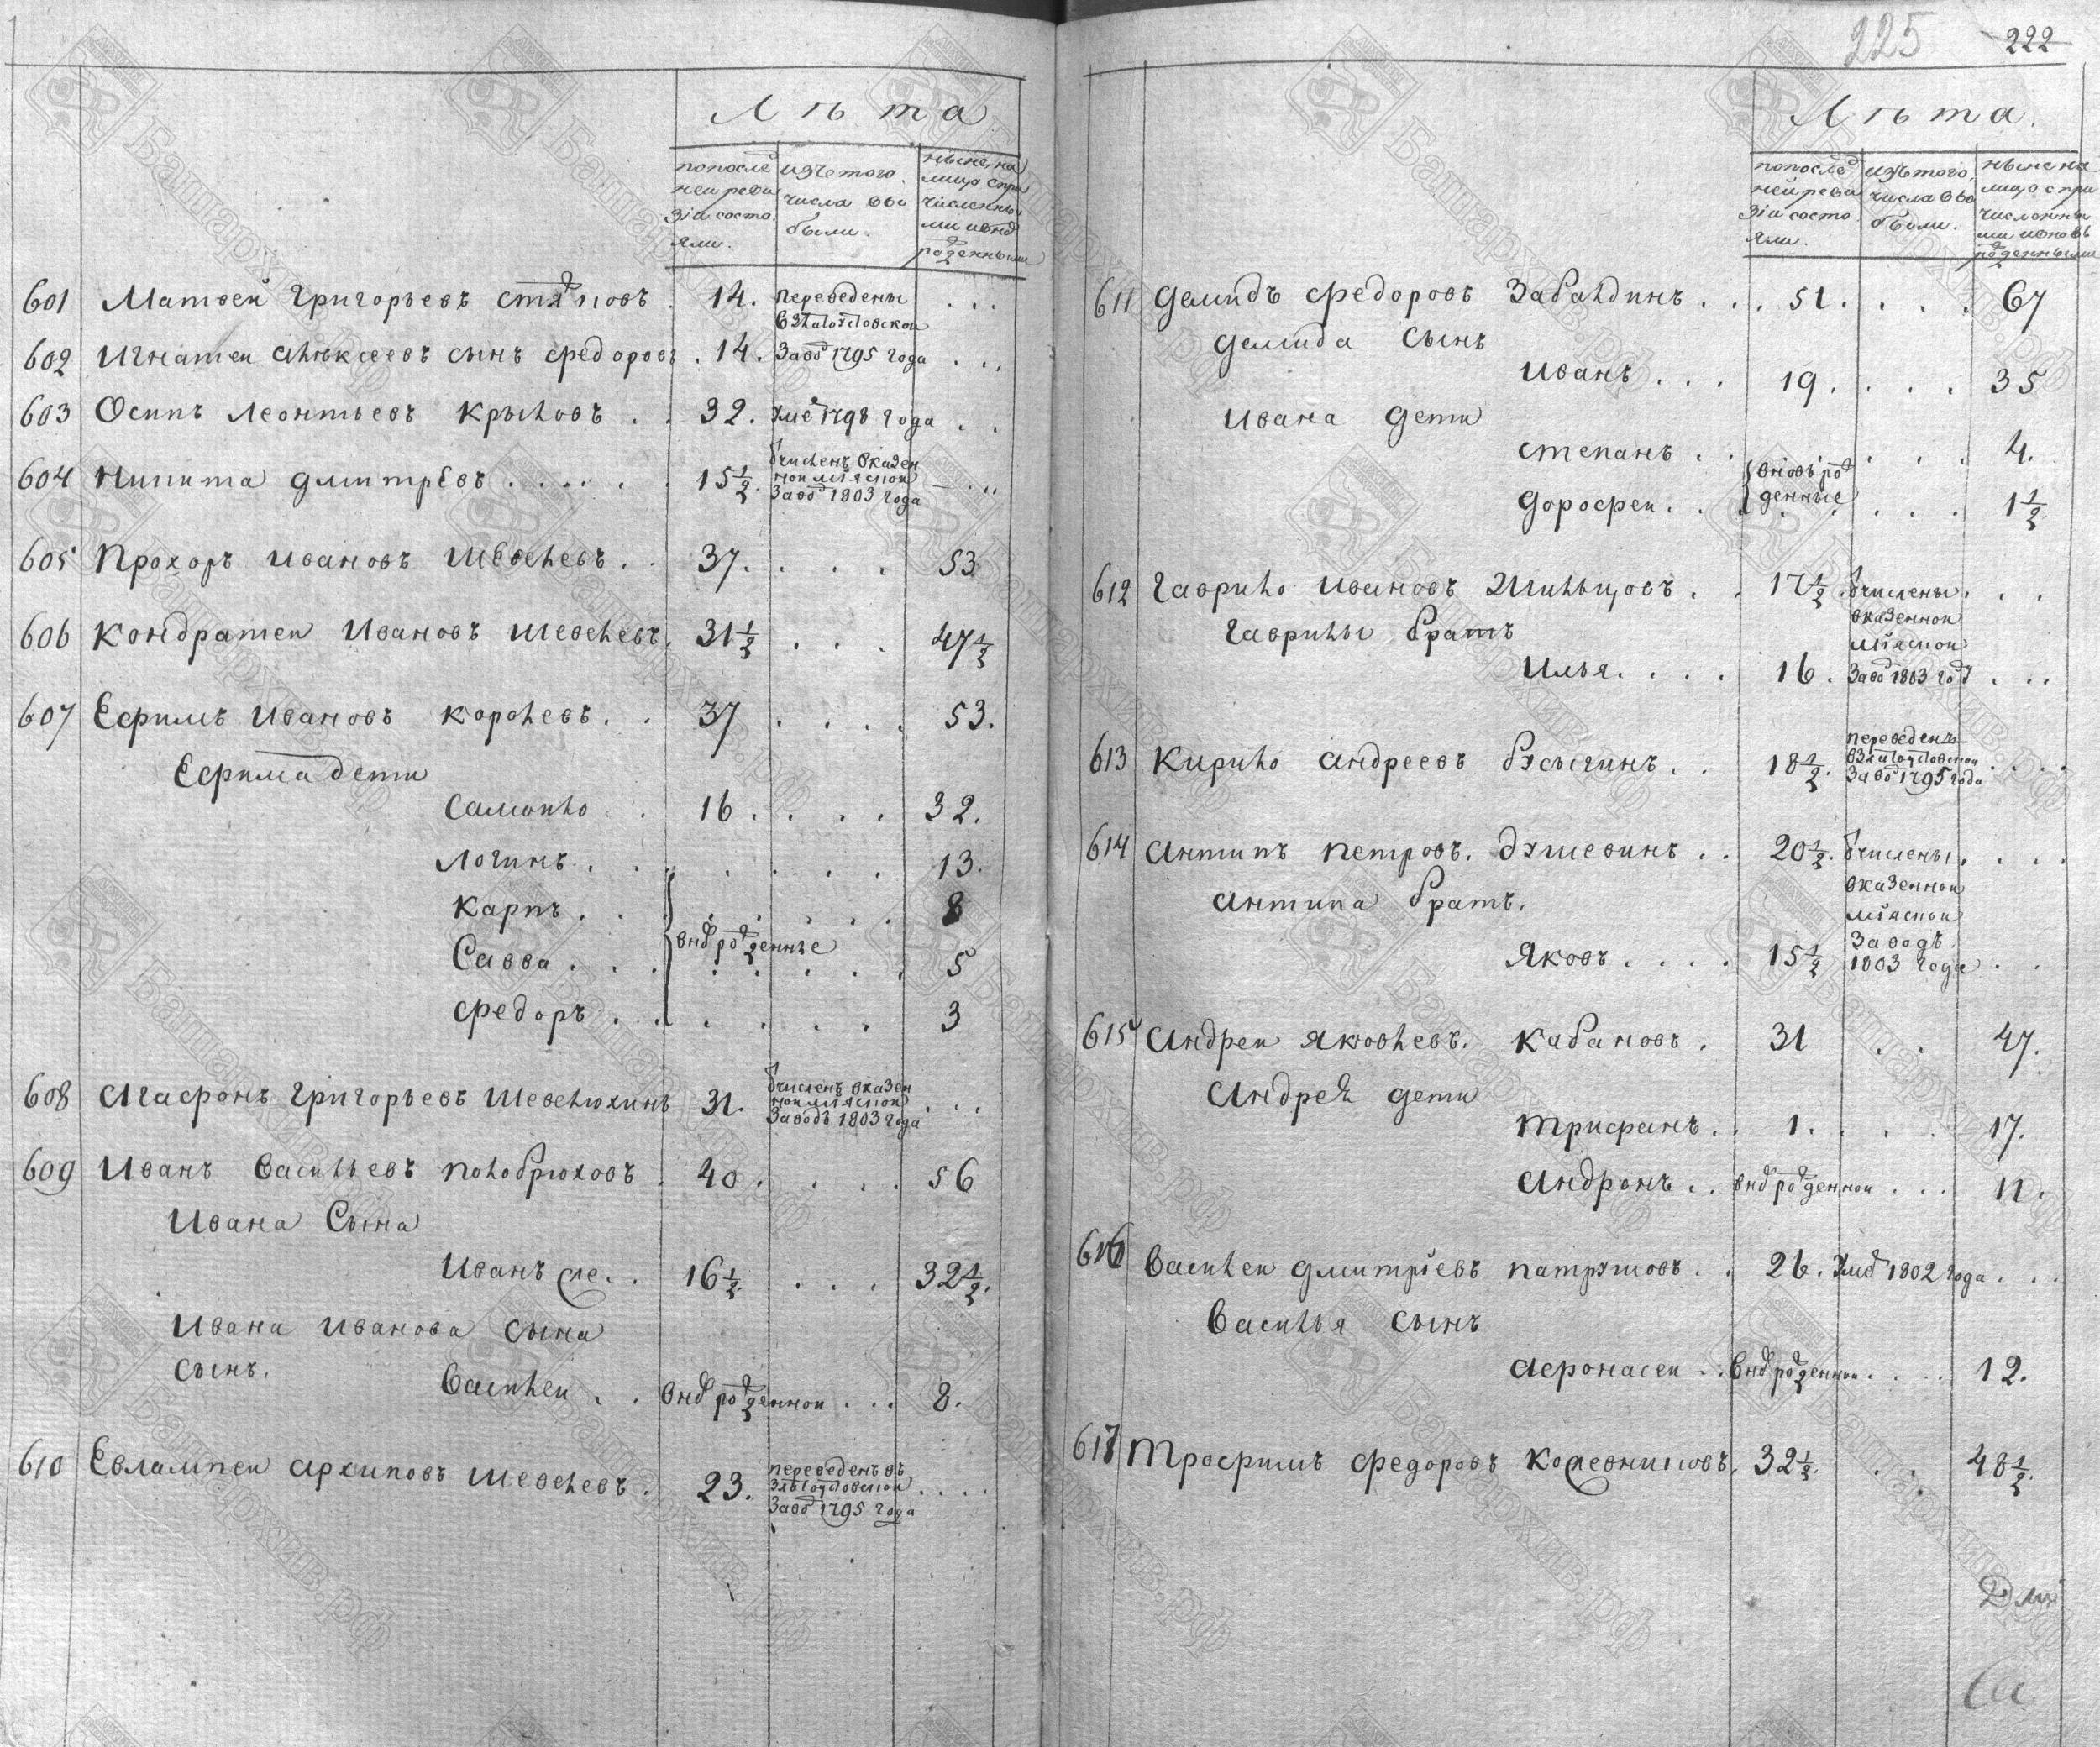 Лѣта
попослѣд
ней реви
зіи состо
яли.
изътого
числа вы
были.
ныне на
лицо спри
численны
ми ивнѡ
рожденными
601 Матвей Григорьевъ 14. переведены
взлатоустовской
602 Игнатеи Алѣксеевъ сынъ Федоровъ 14. Завд 1795 года
603 Осипъ Леонтьевъ Крыловъ 32. Уме 1798 года
604 Никита Дмитрѣевъ 15½ ѿчисленъ вказен
ной мїяской
Завд 1803 года
605 Прохоръ Ивановъ Шевелевъ 37. 53
606 Кондратеи Ивановъ Шевелевъ 31½ 47½
607 Ефимъ Ивановъ Королевъ 37 53.
Ефима дети
Самоило 16 32.
Логинъ 13.
Карпъ 8
внѡ рожденные
Савва 5
Федоръ 3
608 Агафонъ Григорьевъ Шевелюхинъ 31. ѿчисленъ вказен
ной мїяской
Заводъ 1803 года
609 Иванъ Васильевъ Полобрюховъ 40 56
Ивана Сына
Иванъ ме. 16½ 32½
Ивана Иванова сына
сынъ.
Василеи внѡ рожденной 8.
610 Евлампеи Архиповъ Шевелевъ 23. переведенъ въ
Златоустовской
Завд 1795 года
225 222
Лѣта.
попослѣд
ней реви
зіи состо
яли.
изътого
числа вы
были.
ныне на
лицо спри
численны
ми ивновь
рожденными
611 Демидъ Федоровъ Забалдинъ 51. 67
Демида Сынъ
Иванъ 19. 35
Ивана дети
Степанъ 4.
вновь рож
денные
Дорофеи 1½
612 Гаврило Ивановъ Жильцовъ 17½ ѿчислены
вказенной
Гаврилы братъ
мїяской
Илья 16. Завд 1803 год
613 Кирило Андреевъ Бусыгинъ 18½ переведенъ
взлатоустовской
Завд 1795 года
614 Антипъ Петровъ. Думевинъ 20½. ѿчислены
вказенной
Антипа братъ.
мїяской
Заводъ
Яковъ 15½ 1803 года
615 Андреи Яковлевъ. Кабановъ 31 47.
Андрея дети
Трифанъ 1. 17.
Андронъ внѡ рожденной 11.
616 Василеи Дмитрїевъ Патрушовъ 26. Умѡ 1802 года
Василья сынъ
Афонасеи внѡ рожденной 12.
617 Трофимъ Федоровъ Кожевниковъ 32½ 48½